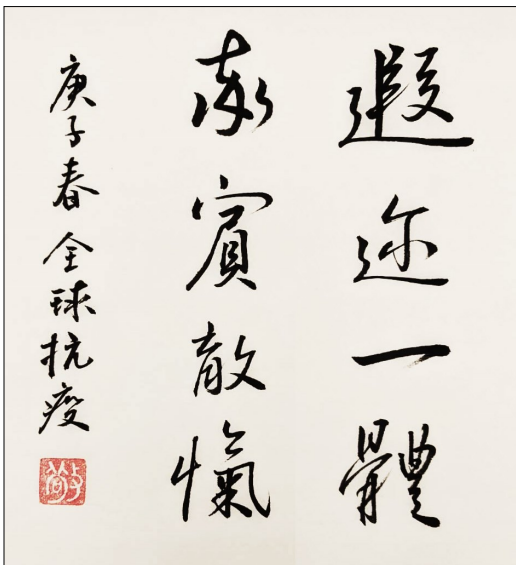 遐迩一體
率賓敵愾
庚子春 全球抗疫